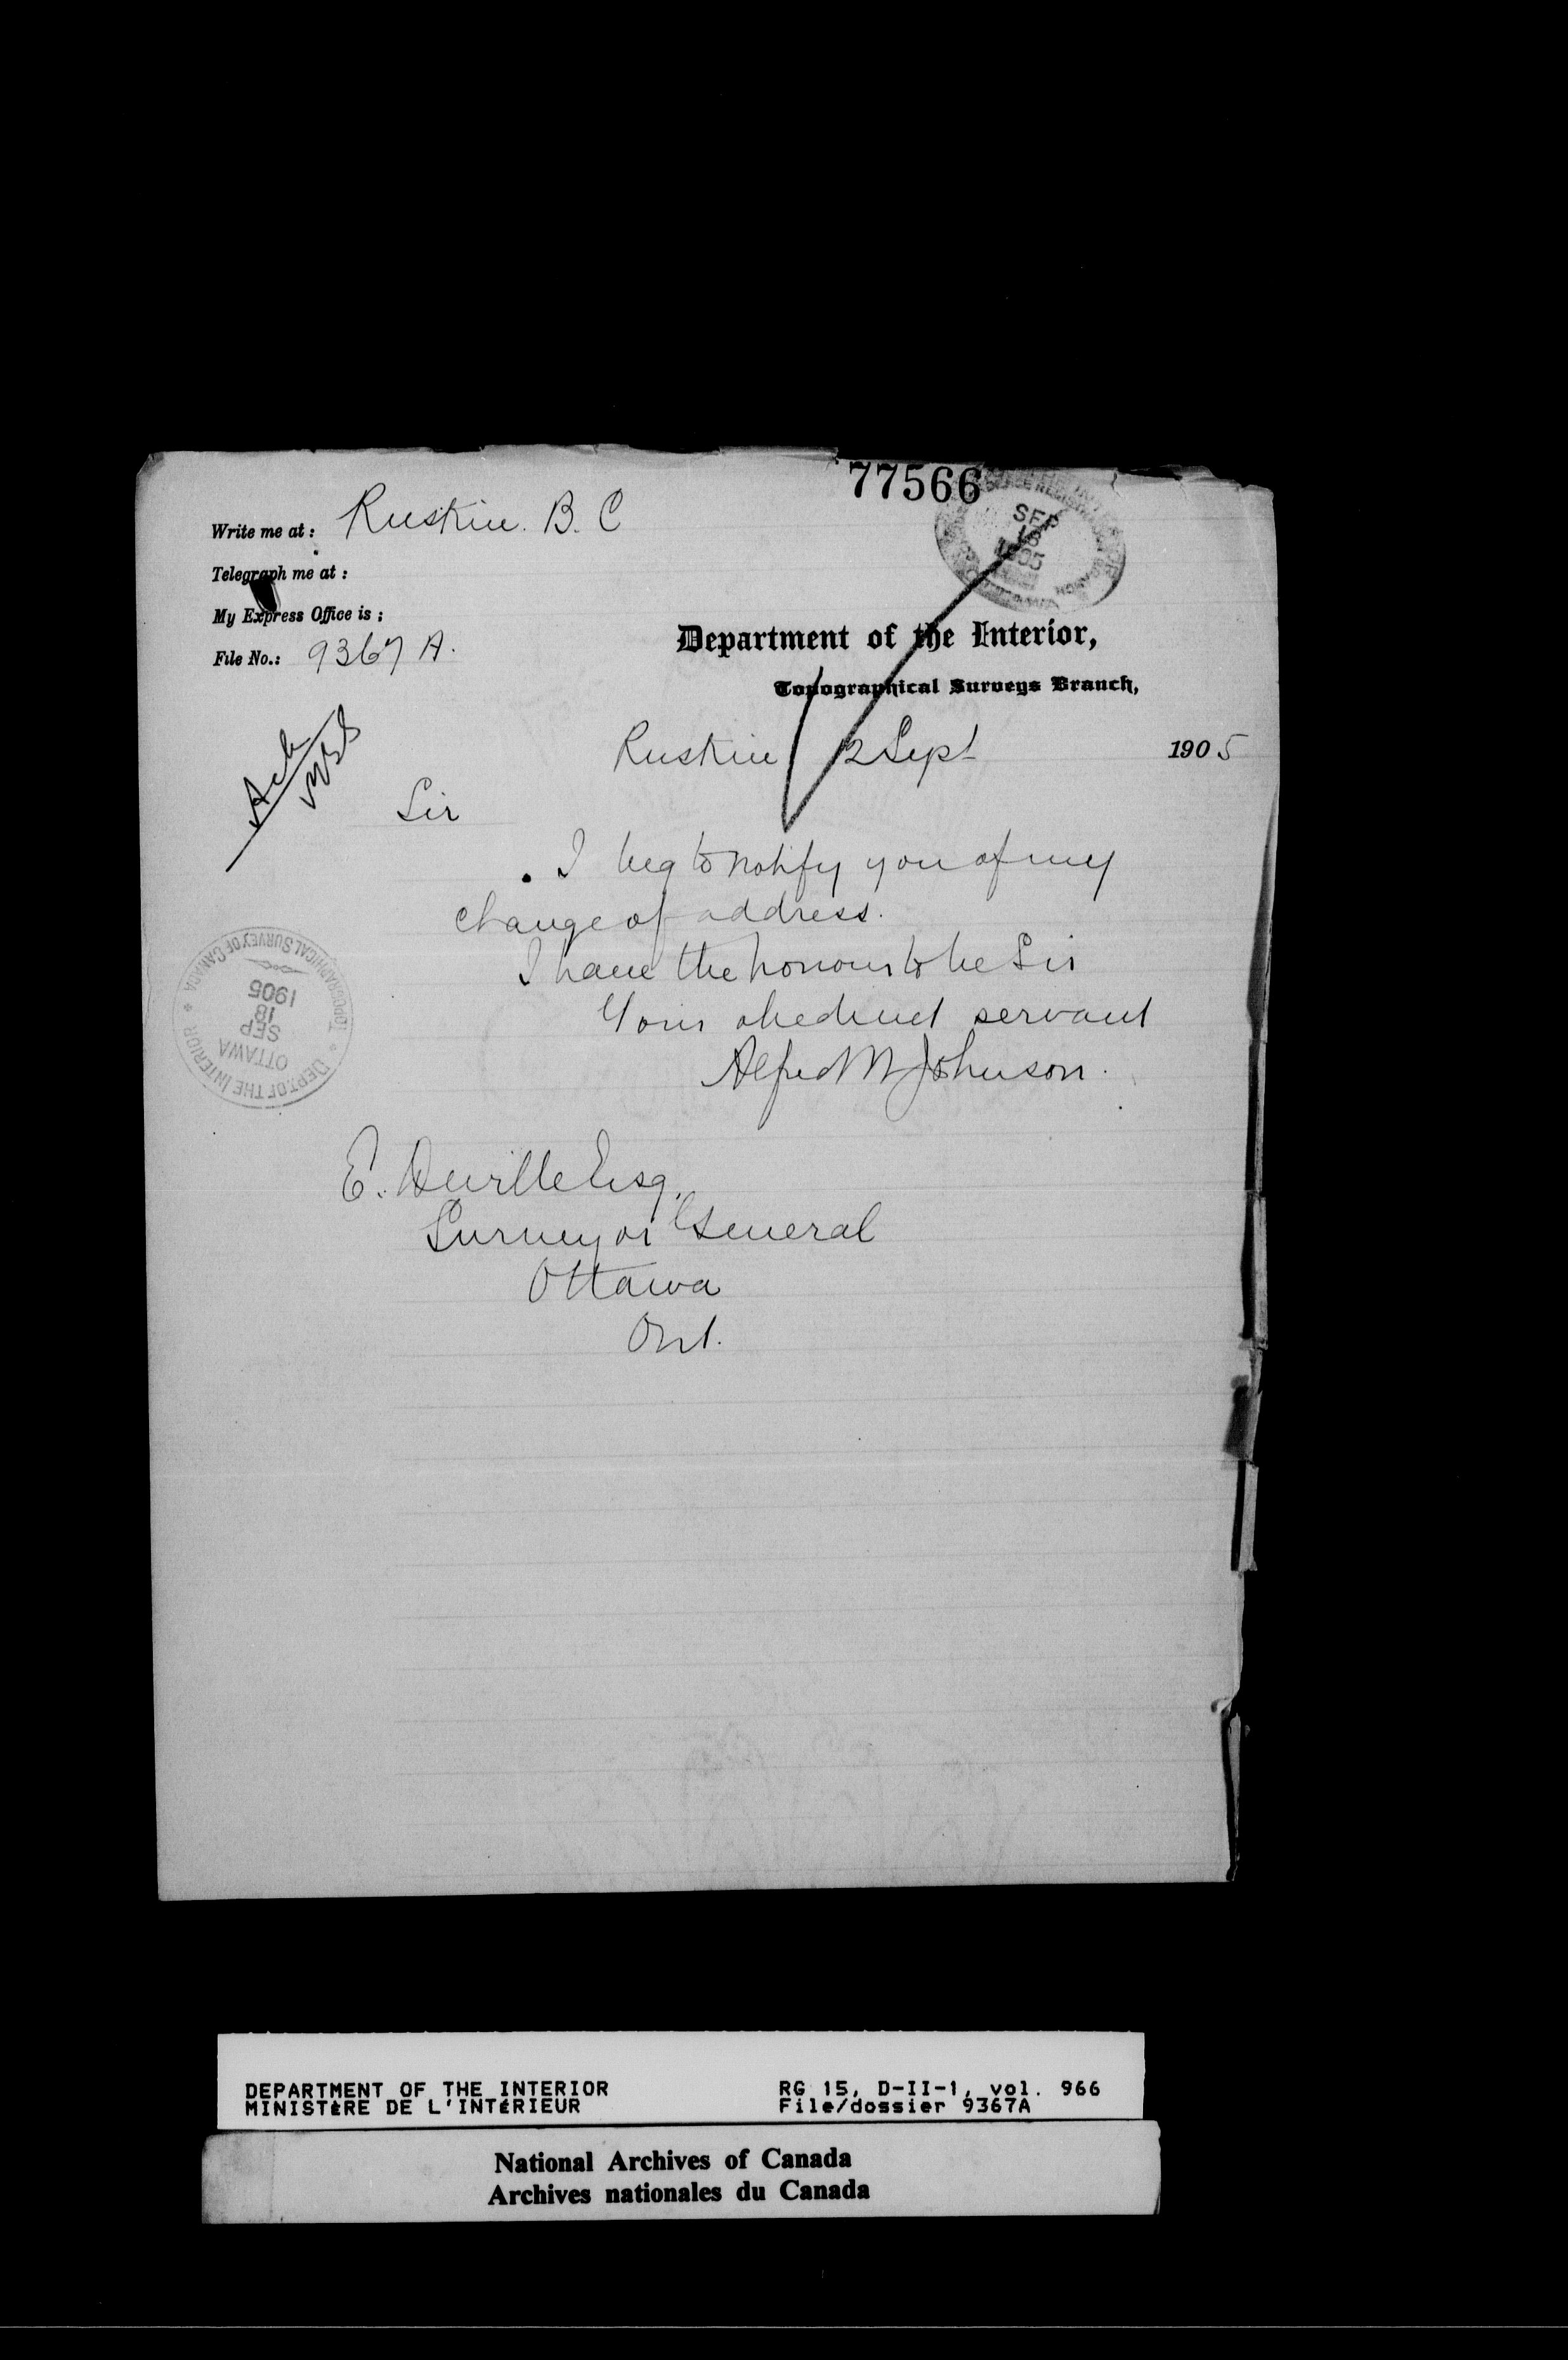 77566
SEP
18
Write me at: Ruskin. B. C
Telegraph me at:
My Express Office is:
File No.: 9367 A.
Department of the Interior,
Topographical Surveys Branch,
Ruskin 12 Sept 1905
Ack
Sir
I beg to notify you of my
change of address.
I have the honour to be Sir
Your obedient servant
Alfred M Johnson.
TOPOGRAPHICAL SURVEY OF CANADA
1905
18
SEP
OTTAWA
DEPT. OF THE INTERIOR
E. Deville Esq,
Surveyor General
Ottawa
Ont.
DEPARTMENT OF THE INTERIOR RG 15, D-II-1, vol. 966
MINISTÈRE DE L'INTÉRIEUR File/dossier 9367A
National Archives of Canada
Archives nationales du Canada